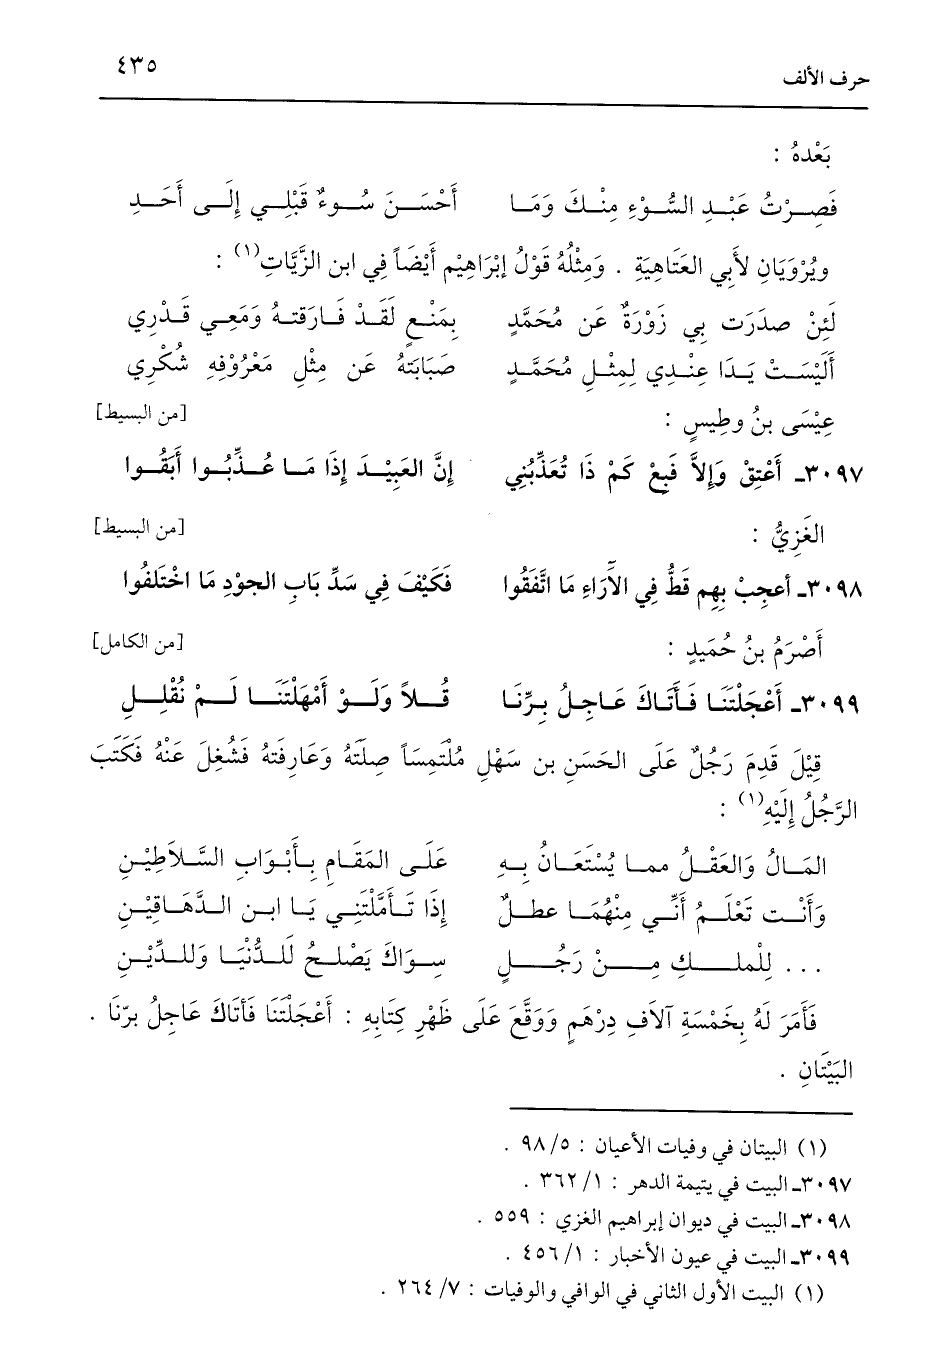 حرف الألف ٤٣٥
بَعْدهُ :
فَصِرْتُ عَبْدِ السُّوْءِ مِنْكَ وَمَا أَحْسَنَ سُوءٌ قَبْلِي إِلَى أَحَدِ
ويُرْوَيَانِ لأَبي العَتَاهِيَةِ . وَمِثْلُهُ قَوْلُ إبْرَاهِيْم أَيْضَاً فِي ابن الزَّيَّاتِ(١) :
لَئِنْ صدَرَت بِي زَوْرَةٌ عَن مُحَمَّدٍ بِمَنْعٍ لَقَدْ فَارَقتهُ وَمَعِي قَدْرِي
أَلَيْسَتْ يَدَا عِنْدِي لِمِثْلِ مُحَمَّدٍ صَبَابَتهُ عَن مِثْلِ مَعْرُوْفِهِ شُكْرِي
عِيْسَى بنُ وطِيسٍ : [من البسيط]
٣٠٩٧ـ أَعْتِقْ وَإِلاَّ فَبِعْ كَمْ ذَا تُعَذِّبُنِي إِنَّ العَبِيْدَ إِذَا مَا عُذِّبُوا أَبَقُوا
الغَزِيُّ : [من البسيط]
٣٠٩٨ـ أعجِبْ بِهِم قَطُّ فِي الآرَاءِ مَا اتَّفَقُوا فَكَيْفَ فِي سَدِّ بَابِ الجوْدِ مَا اخْتَلفُوا
أَصْرَمُ بنُ حُمَيدٍ : [من الكامل]
٣٠٩٩ـ أَعْجَلْتَنَا فَأَتَاكَ عَاجِلُ بِرِّنَا قُلاًّ وَلَوْ أَمْهَلْتَنَا لَمْ نُقْلِلِ
قِيْلَ قَدِمَ رَجُلٌ عَلَى الحَسَنِ بن سَهْلٍ مُلْتَمِسَاً صِلَتَهُ وَعَارِفَتهُ فَشُغِلَ عَنْهُ فَكَتَبَ
الرَّجُلُ إِلَيْهِ(١) :
المَالُ وَالعَقْلُ مما يُسْتَعَانُ بِهِ عَلَى المَقَامِ بِأَبْوَابِ السَّلاَطِيْنِ
وَأَنْت تَعْلَمُ أَنِّي مِنْهُمَا عطلٌ إِذَا تَأَمَّلْتَنِي يَا ابن الدَّهَاقِيْنِ
... لِلْملكِ مِنْ رَجُلٍ سِوَاكَ يَصْلحُ لَلدُّنْيَا وَللدِّيْنِ
فَأَمَرَ لَهُ بِخَمْسَةِ آلاَفِ دِرْهَمٍ وَوَقَّعَ عَلَى ظَهْرِ كِتَابِهِ : أَعْجَلْتَنَا فَأتَاكَ عَاجِلُ برّنَا .
البَيْتَانِ .
(١) البيتان في وفيات الأعيان : ٩٨/٥ .
٣٠٩٧ـ البيت في يتيمة الدهر : ٣٦٢/١ .
٣٠٩٨ـ البيت في ديوان إبراهيم الغزي : ٥٥٩ .
٣٠٩٩ـ البيت في عيون الأخبار : ٤٥٦/١ .
(١) البيت الأول الثاني في الوافي والوفيات : ٢٦٤/٧ .